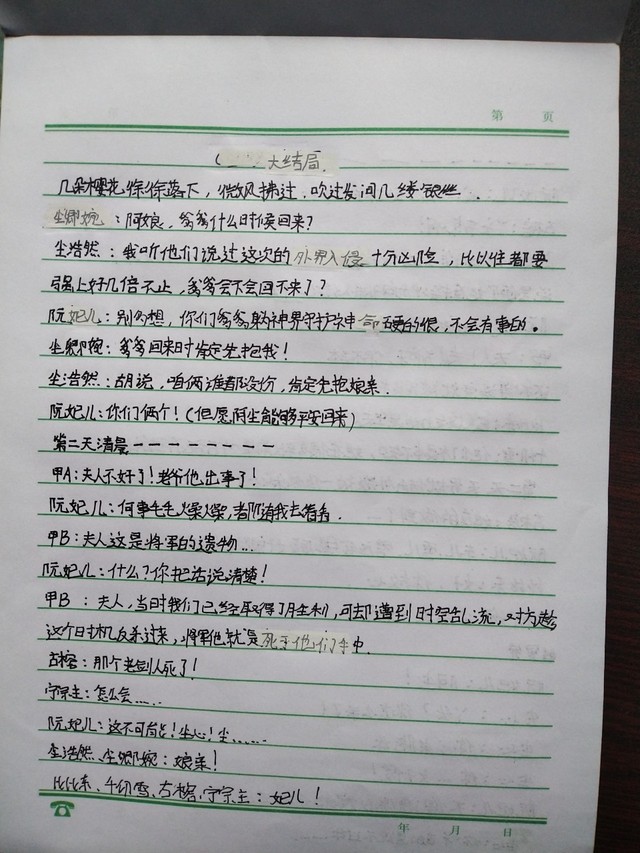 第 页
大结局.
几朵樱花徐徐落下，微风拂过.吹过发间几缕银丝.
尘卿婉：阿娘，爹爹什么时候回来?
尘浩然：我听他们说过这次的外界入侵十分凶险，比以往都要
强上好几倍不止，爹爹会不会回不来了?
阮妃儿：别多想，你们爹爹身为神界守护神命硬的很，不会有事的。
尘卿婉：爹爹回来时肯定先抱我!
尘浩然：胡说，咱俩谁都没份，肯定先抱娘亲.
阮妃儿：你们俩个!(但愿阿尘能够平安回来)
第二天清晨--------
甲A：夫人不好了!老爷他出事了!
阮妃儿：何事毛毛燥燥，都随我去看看.
甲B：夫人这是将军的遗物...
阮妃儿：什么?你把话说清楚!
甲B：夫人，当时我们已经取得了胜利，可却遭到时空乱流，对方趁
这个时机反杀过来，将军他就是死于他们手中.
古榕：那个老剑人死了!
宁宗主：怎么会.....
阮妃儿：这不可能!尘心!尘......
尘浩然、尘卿婉：娘亲!
比比东、千仞雪、古榕、宁宗主：妃儿!
年 月 日